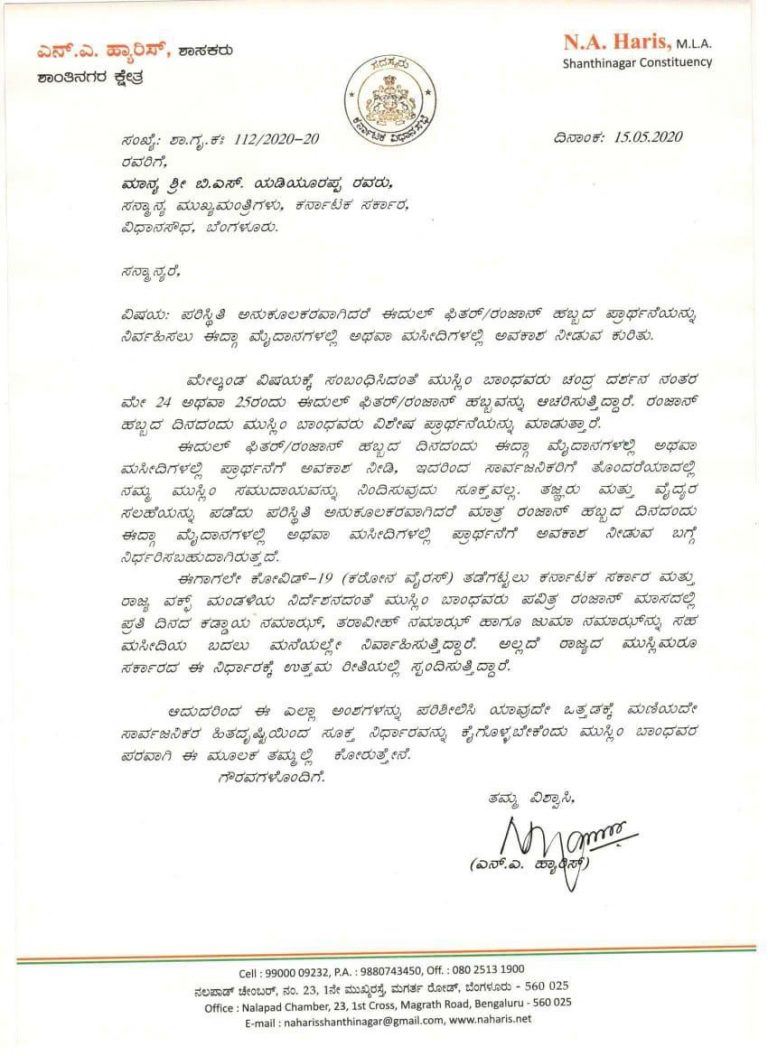 ಎನ್.ಎ. ಹ್ಯಾರಿಸ್, ಶಾಸಕರು
ಶಾಂತಿನಗರ ಕ್ಷೇತ್ರ
ಸದಸ್ಯರು
ಕರ್ನಾಟಕ ವಿಧಾನಸಭೆ
N.A. Haris, M.L.A.
Shanthinagar Constituency
ಸಂಖ್ಯೆ: ಶಾ.ಗೃ.ಕಃ 112/2020-20
ದಿನಾಂಕ: 15.05.2020
ರವರಿಗೆ,
ಮಾನ್ಯ ಶ್ರೀ ಬಿ.ಎಸ್. ಯಡಿಯೂರಪ್ಪ ರವರು,
ಸನ್ಮಾನ್ಯ ಮುಖ್ಯಮಂತ್ರಿಗಳು, ಕರ್ನಾಟಕ ಸರ್ಕಾರ,
ವಿಧಾನಸೌಧ, ಬೆಂಗಳೂರು.
ಸನ್ಮಾನ್ಯರೆ,
ವಿಷಯ: ಪರಿಸ್ಥಿತಿ ಅನುಕೂಲಕರವಾಗಿದರೆ ಈದುಲ್ ಫಿತರ್/ರಂಜಾನ್ ಹಬ್ಬದ ಪ್ರಾರ್ಥನೆಯನ್ನು
ನಿರ್ವಹಿಸಲು ಈದ್ಗಾ ಮೈದಾನಗಳಲ್ಲಿ ಅಥವಾ ಮಸೀದಿಗಳಲ್ಲಿ ಅವಕಾಶ ನೀಡುವ ಕುರಿತು.
ಮೇಲ್ಕಂಡ ವಿಷಯಕ್ಕೆ ಸಂಬಂಧಿಸಿದಂತೆ ಮುಸ್ಲಿಂ ಬಾಂಧವರು ಚಂದ್ರ ದರ್ಶನ ನಂತರ
ಮೇ 24 ಅಥವಾ 25ರಂದು ಈದುಲ್ ಫಿತರ್/ರಂಜಾನ್ ಹಬ್ಬವನ್ನು ಆಚರಿಸುತ್ತಿದ್ದಾರೆ. ರಂಜಾನ್
ಹಬ್ಬದ ದಿನದಂದು ಮುಸ್ಲಿಂ ಬಾಂಧವರು ವಿಶೇಷ ಪ್ರಾರ್ಥನೆಯನ್ನು ಮಾಡುತ್ತಾರೆ.
ಈದುಲ್ ಫಿತರ್/ರಂಜಾನ್ ಹಬ್ಬದ ದಿನದಂದು ಈದ್ಗಾ ಮೈದಾನಗಳಲ್ಲಿ ಅಥವಾ
ಮಸೀದಿಗಳಲ್ಲಿ ಪ್ರಾರ್ಥನೆಗೆ ಅವಕಾಶ ನೀಡಿ, ಇದರಿಂದ ಸಾರ್ವಜನಿಕರಿಗೆ ತೊಂದರೆಯಾದಲ್ಲಿ
ನಮ್ಮ ಮುಸ್ಲಿಂ ಸಮುದಾಯವನ್ನು ನಿಂದಿಸುವುದು ಸೂಕ್ತವಲ್ಲ. ತಜ್ಞರು ಮತ್ತು ವೈದ್ಯರ
ಸಲಹೆಯನ್ನು ಪಡೆದು ಪರಿಸ್ಥಿತಿ ಅನುಕೂಲಕರವಾಗಿದರೆ ಮಾತ್ರ ರಂಜಾನ್ ಹಬ್ಬದ ದಿನದಂದು
ಈದ್ಗಾ ಮೈದಾನಗಳಲ್ಲಿ ಅಥವಾ ಮಸೀದಿಗಳಲ್ಲಿ ಪ್ರಾರ್ಥನೆಗೆ ಅವಕಾಶ ನೀಡುವ ಬಗ್ಗೆ
ನಿರ್ಧರಿಸಬಹುದಾಗಿರುತ್ತದೆ.
ಈಗಾಗಲೇ ಕೋವಿಡ್-19 (ಕರೋನ ವೈರಸ್) ತಡೆಗಟ್ಟಲು ಕರ್ನಾಟಕ ಸರ್ಕಾರ ಮತ್ತು
ರಾಜ್ಯ ವಕ್ಫ್ ಮಂಡಳಿಯ ನಿರ್ದೆಶನದಂತೆ ಮುಸ್ಲಿಂ ಬಾಂಧವರು ಪವಿತ್ರ ರಂಜಾನ್ ಮಾಸದಲ್ಲಿ
ಪ್ರತಿ ದಿನದ ಕಡ್ಡಾಯ ನಮಾಝ್, ತರಾವೀಹ್ ನಮಾಝ್ ಹಾಗೂ ಜುಮಾ ನಮಾಝ್‌ನ್ನು ಸಹ
ಮಸೀದಿಯ ಬದಲು ಮನೆಯಲ್ಲೇ ನಿರ್ವಾಹಿಸುತ್ತಿದ್ದಾರೆ. ಅಲ್ಲದೆ ರಾಜ್ಯದ ಮುಸ್ಲಿಮರೂ
ಸರ್ಕಾರದ ಈ ನಿರ್ಧಾರಕ್ಕೆ ಉತ್ತಮ ರೀತಿಯಲ್ಲಿ ಸ್ಪಂದಿಸುತ್ತಿದ್ದಾರೆ.
ಆದುದರಿಂದ ಈ ಎಲ್ಲಾ ಅಂಶಗಳನ್ನು ಪರಿಶೀಲಿಸಿ ಯಾವುದೇ ಒತ್ತಡಕ್ಕೆ ಮಣಿಯದೇ
ಸಾರ್ವಜನಿಕರ ಹಿತದೃಷ್ಟಿಯಿಂದ ಸೂಕ್ತ ನಿರ್ಧಾರವನ್ನು ಕೈಗೊಳ್ಳಬೇಕೆಂದು ಮುಸ್ಲಿಂ ಬಾಂಧವರ
ಪರವಾಗಿ ಈ ಮೂಲಕ ತಮ್ಮಲ್ಲಿ ಕೋರುತ್ತೇನೆ.
ಗೌರವಗಳೊಂದಿಗೆ.
ತಮ್ಮ ವಿಶ್ವಾಸಿ,
(ಎನ್.ಎ. ಹ್ಯಾರಿಸ್)
Cell : 99000 09232, P.A. : 9880743450, Off. : 080 2513 1900
ನಲಪಾಡ್ ಚೇಂಬರ್, ನಂ. 23, 1ನೇ ಮುಖ್ಯರಸ್ತೆ, ಮಗರ್ತ ರೋಡ್, ಬೆಂಗಳೂರು - 560 025
Office : Nalapad Chamber, 23, 1st Cross, Magrath Road, Bengaluru - 560 025
E-mail : naharisshanthinagar@gmail.com, www.naharis.net